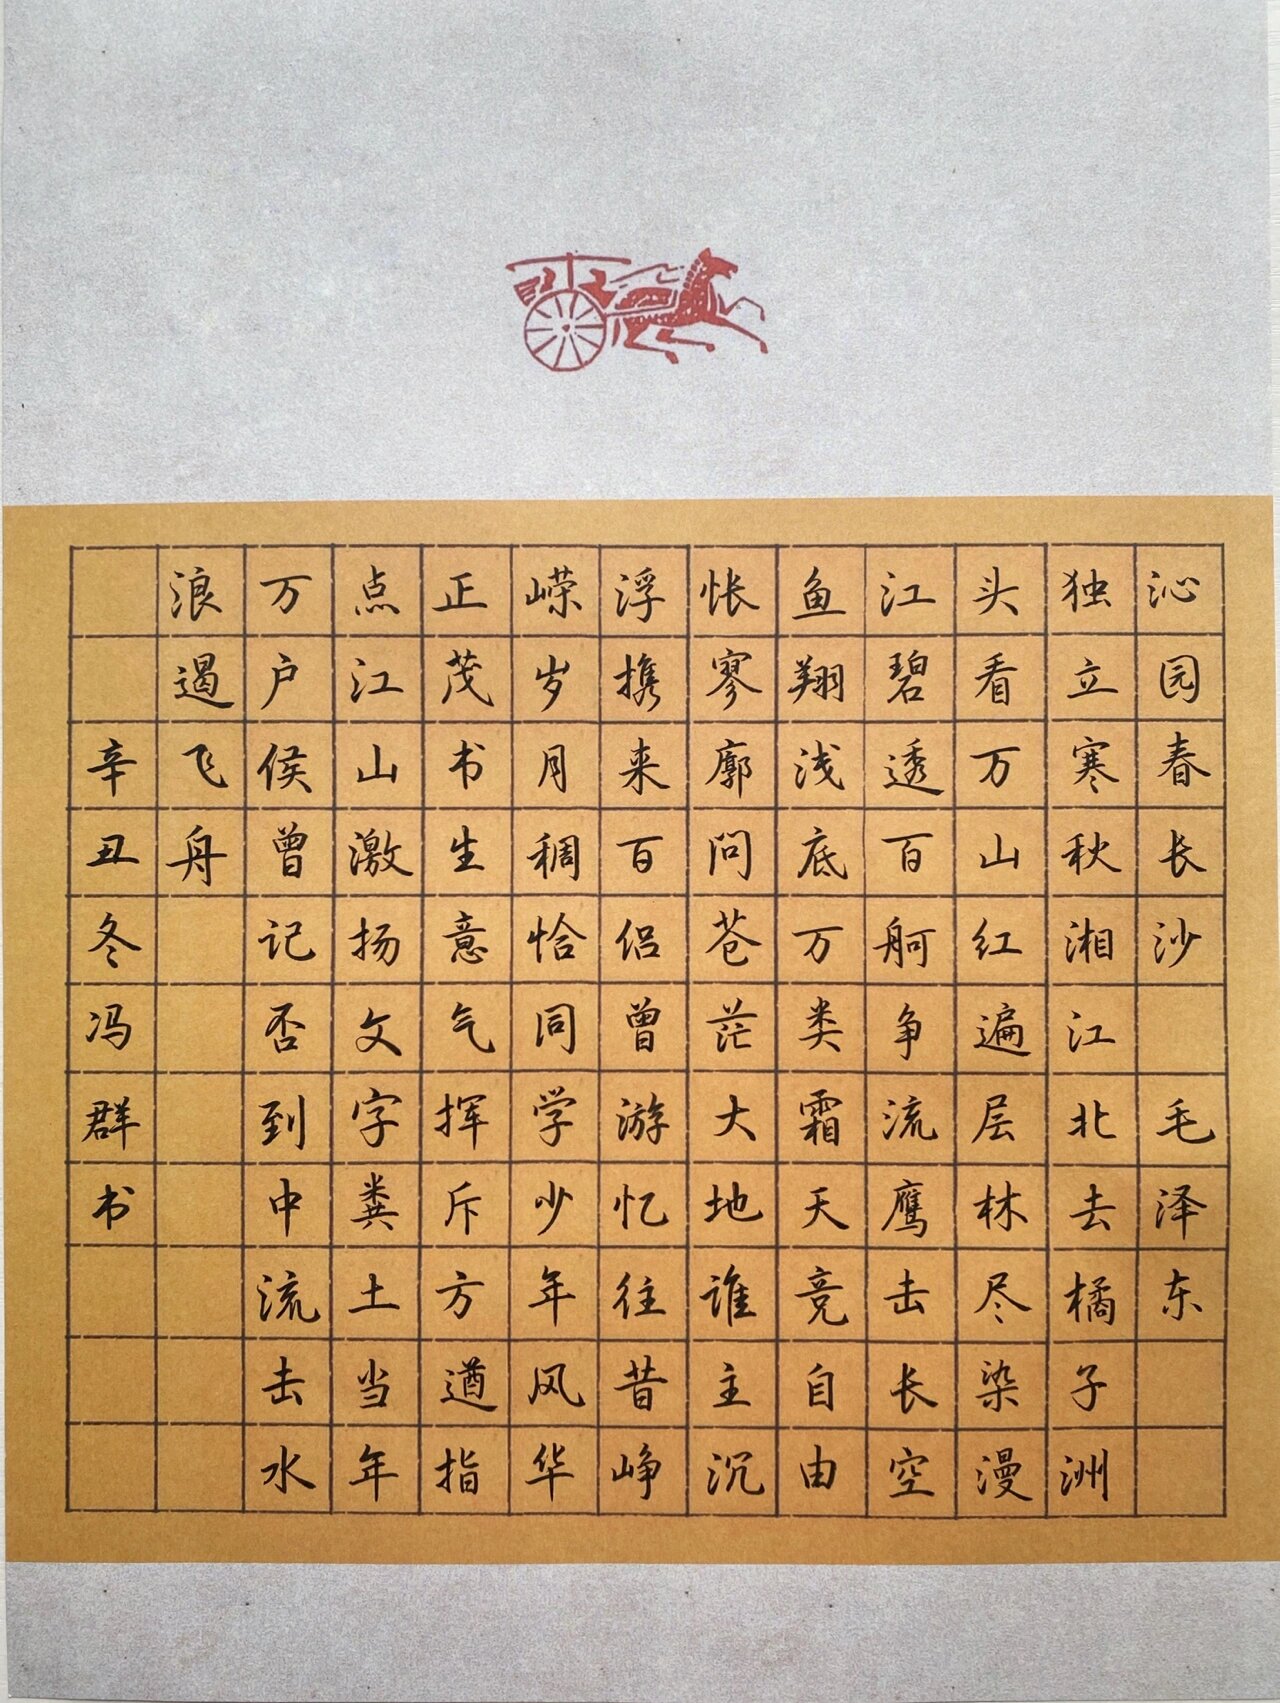 沁园春长沙 毛泽东
独立寒秋湘江北去橘子洲
头看万山红遍层林尽染漫
江碧透百舸争流鹰击长空
鱼翔浅底万类霜天竞自由
怅寥廓问苍茫大地谁主沉
浮携来百侣曾游忆往昔峥
嵘岁月稠恰同学少年风华
正茂书生意气挥斥方遒指
点江山激扬文字粪土当年
万户侯曾记否到中流击水
浪遏飞舟
辛丑冬冯群书